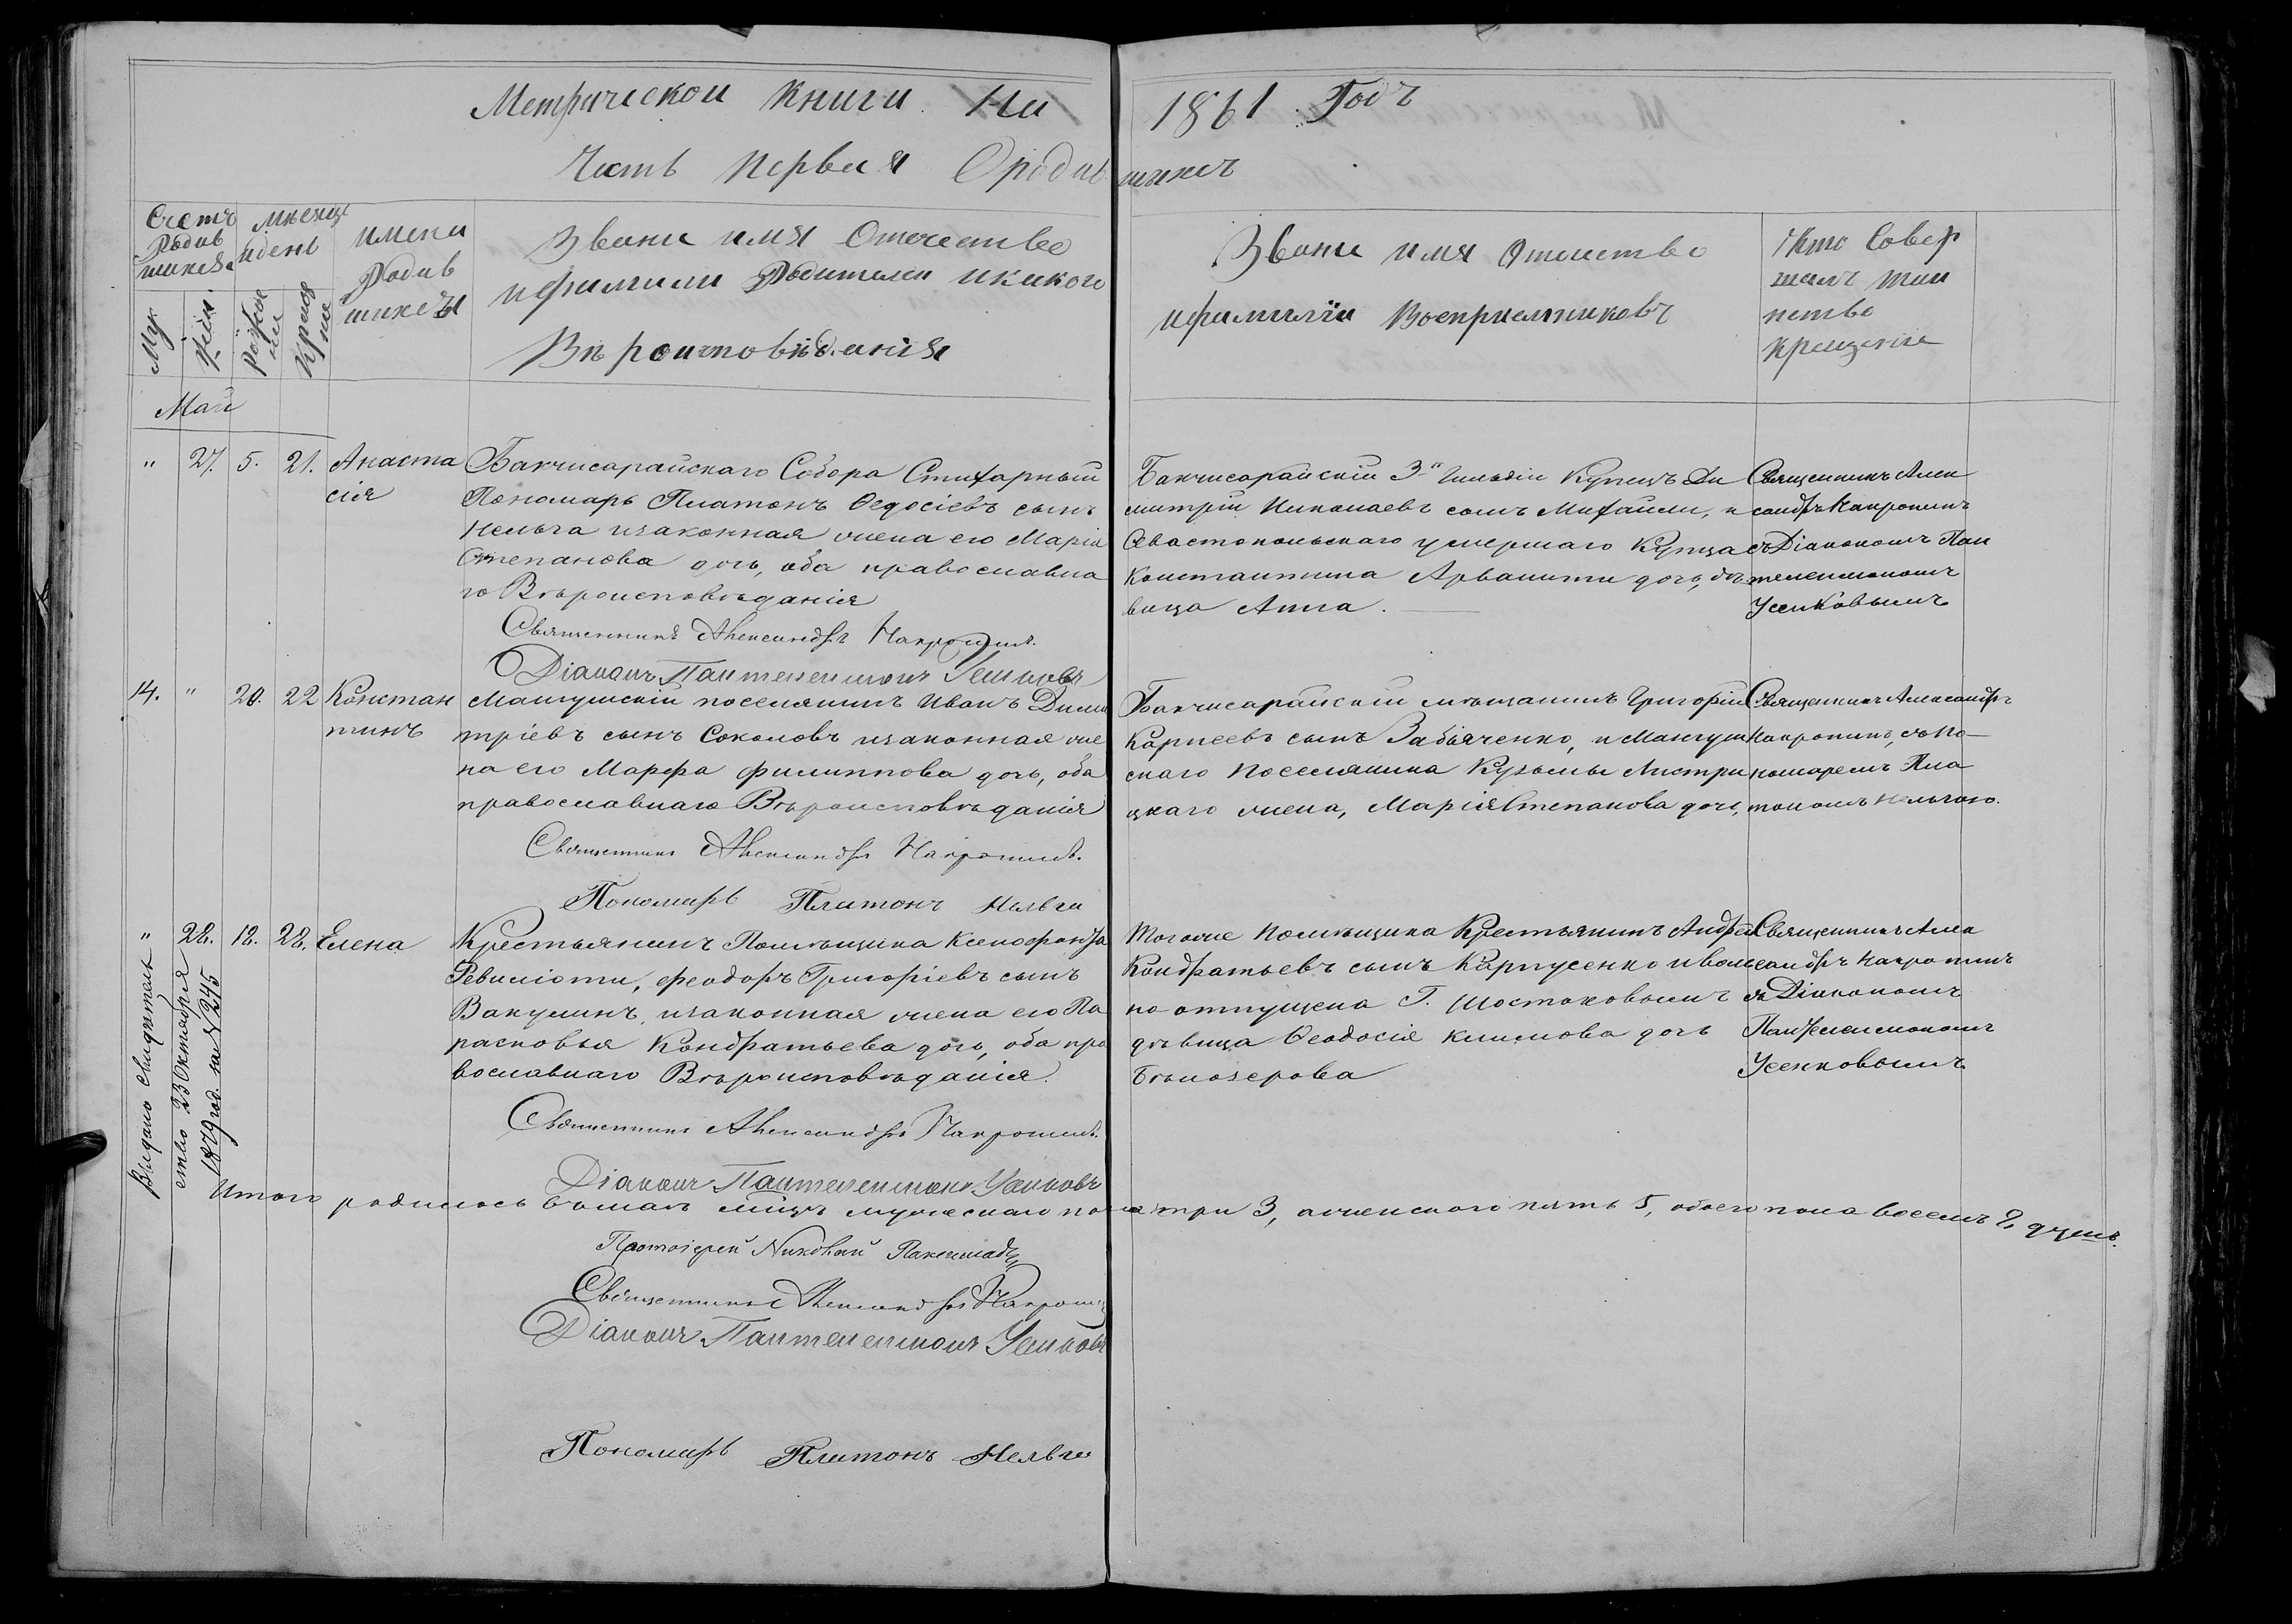 Метрической Книги На 1861 Годъ
Часть Первая О родившихся
Счетъ Родившихся
Муж. Жен.
Мѣсяцъ и день
Рождения Крещения
Имена Родившихся
Звание имя Отечество
и фамили Родителей и какого
Вѣроисповѣдания
Звание имя Отечество
и фамилïи Восприемниковъ
Кто Совер
шалъ таи
нство
крещение
Май
" 27. 5. 21. Анаста
сія
Бакчисарайскаго Собора Стихарный
Пономарь Платонъ Ѳедосіевъ сынъ
Нельга изаконная жена его Марія
Степанова дочь, оба православна
го Вѣроисповѣданія
Священникъ Александръ Накропинъ.
Діаконъ Пантелеимонъ Усенковъ
Бакчисарайскій 3й Гильдіи Купецъ Ди
митрій Николаевъ сынъ Михаили, и
Севастопольскаго умершаго Купца
Константина Арванити дочь, дѣ
вица Анна.
Священникъ Алек
сандръ Накропинъ
съ Діакономъ Пан
телеимономъ
Усенковымъ
14. " 20. 22 Констан
тинъ
Мангушскій поселянинъ Иванъ Дими
тріевъ сынъ Соколовъ изаконная же
на его Марфа Филиппова дочь, оба
православнаго Вѣроисповѣданія
Священникъ Александръ Накропинъ.
Пономарь Платонъ Нельга
Бакчисарайскій мѣщанинъ Григорій
Карпеевъ сынъ Забьяченко, и Мангуш
скаго поселянина Кузьмы Аистри
цкаго жена, Марія Степанова дочь,
Священникъ Александръ
Накропинъ, съ по-
номаремъ Пла
тономъ Нельгою.
" 28. 18. 28. Елена
Крестьянинъ Помѣщика Ксенофонта
Ревиліоти, Феодоръ Григоріевъ сынъ
Вакулинъ, изаконная жена его Па
расковья Кондратьева дочь, оба пра
вославнаго Вѣроисповѣданія.
Священникъ Александръ Накропинъ.
Діаконъ Пантелеимонъ Усенковъ
Тогоже помѣщика Крестьянинъ Андрей
Кондратьевъ сынъ Карпусенко и воль
но отпущена Г. Шостаковымъ
дѣвица Ѳеодосія Климова дочь
Бѣлозерова
Священникъ Алек
сандръ Накропинъ
съ Діакономъ
Пантелеимономъ
Усенковымъ
Выдано свидѣтель
ство 23 Октября
1879 год. за № 245
Итого родилось въ маѣ мцѣ мужескаго пола три 3, а женскаго пять 5, обоего пола восемъ 8, душъ.
Протоіерей Николай
Священникъ Александръ Накропинъ
Діаконъ Пантелеимонъ Усенковъ
Пономарь Платонъ Нельга